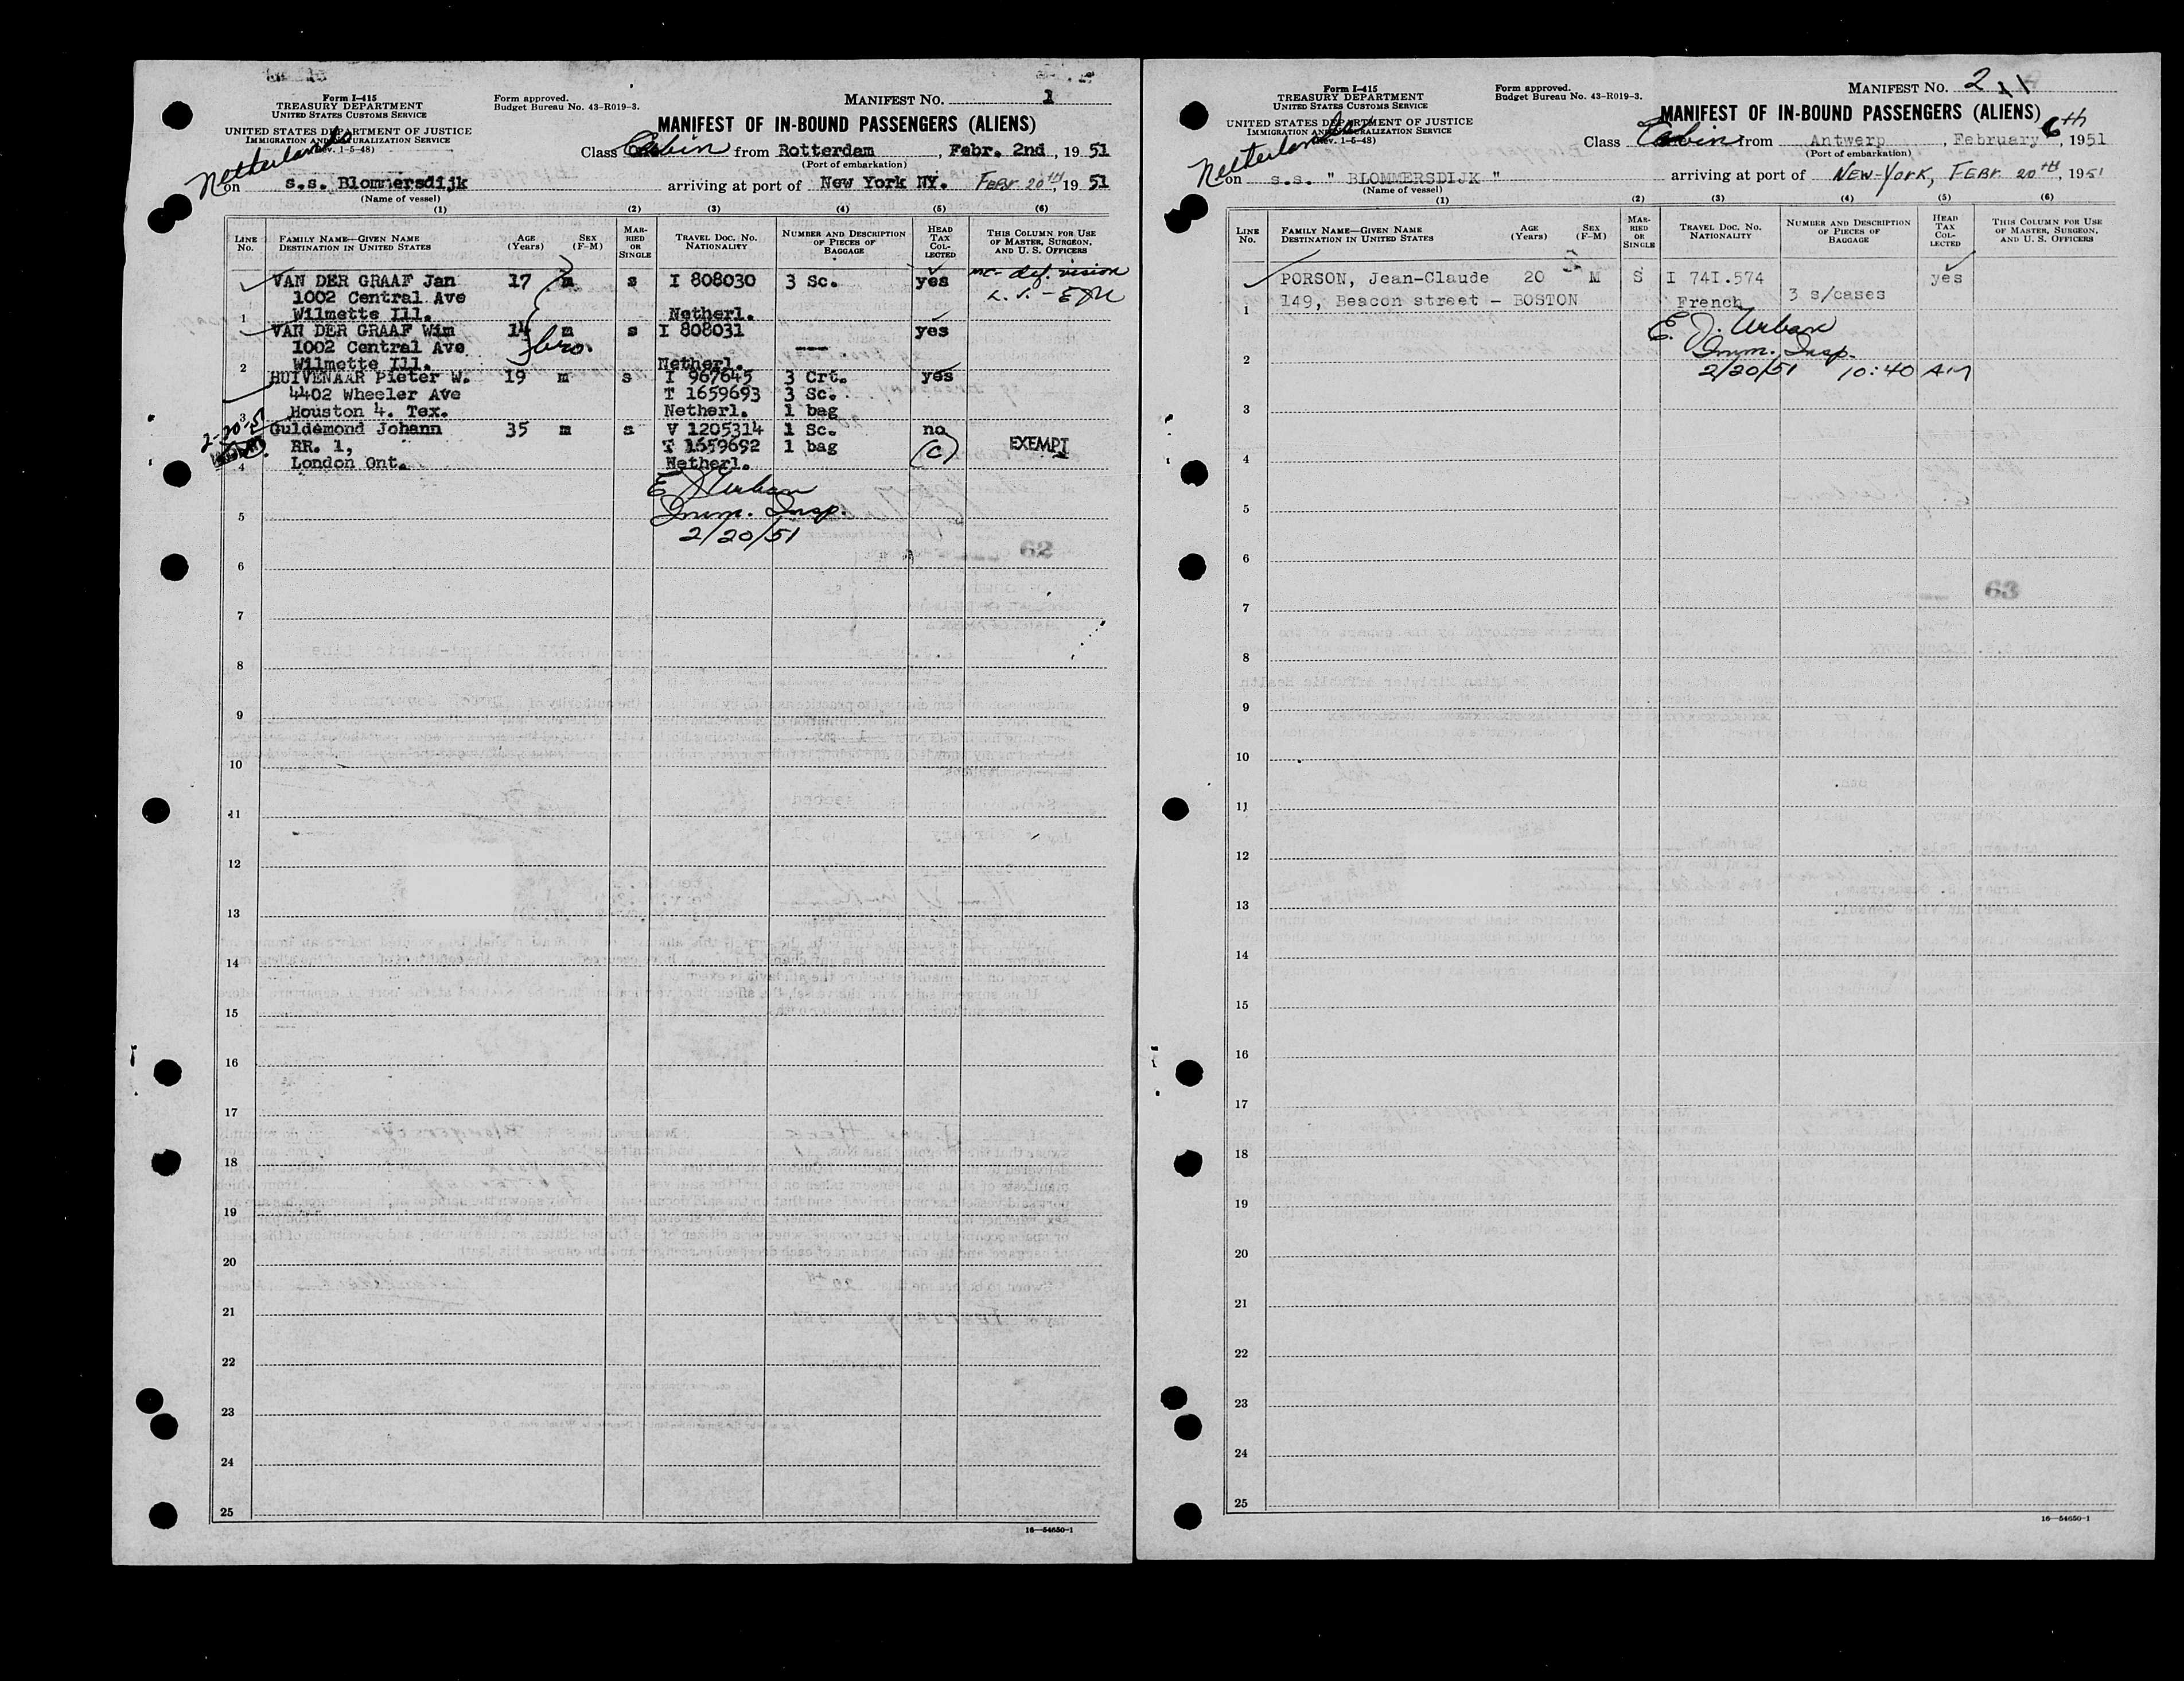 Form I-415
TREASURY DEPARTMENT
UNITED STATES CUSTOMS SERVICE
UNITED STATES DEPARTMENT OF JUSTICE
IMMIGRATION AND NATURALIZATION SERVICE
(Rev. 1-5-48)
Form approved.
Budget Bureau No. 43-R019-3.
MANIFEST NO. 1
MANIFEST OF IN-BOUND PASSENGERS (ALIENS)
Class Cabin from Rotterdam, Febr. 2nd, 1951
(Port of embarkation)
Netherlands
on s.s. Blommersdijk arriving at port of New York NY. Febr 20th, 1951
(Name of vessel)
(1) (2) (3) (4) (5) (6)
LINE No. FAMILY NAME—GIVEN NAME DESTINATION IN UNITED STATES AGE (Years) SEX (F-M) MARRIED OR SINGLE TRAVEL DOC. NO. NATIONALITY NUMBER AND DESCRIPTION OF PIECES OF BAGGAGE HEAD TAX COLLECTED THIS COLUMN FOR USE OF MASTER, SURGEON, AND U. S. OFFICERS
VAN DER GRAAF Jan 17 m s I 808030 3 Sc. yes mc- def. vision
1002 Central Ave
1 Wilmette Ill. Netherl.
VAN DER GRAAF Wim 14 m s I 808031 yes
1002 Central Ave bro.
2 Wilmette Ill. Netherl.
HUIVENAAR Pieter W. 19 m s I 967645 3 Crt. yes
4402 Wheeler Ave T 1659693 3 Sc.
3 Houston 4. Tex. Netherl. 1 bag
2-20-51
Guldemond Johann 35 m s V 1205314 1 Sc. no
RR. 1, T 1659692 1 bag (C) EXEMPT
4 London Ont. Netherl.
E J Urban
Imm. Insp.
2/20/51
5
62
6
7
8
9
10
11
12
13
14
15
16
17
18
19
20
21
22
23
24
25
16—54650-1
Form I-415
TREASURY DEPARTMENT
UNITED STATES CUSTOMS SERVICE
UNITED STATES DEPARTMENT OF JUSTICE
IMMIGRATION AND NATURALIZATION SERVICE
(Rev. 1-5-48)
Form approved.
Budget Bureau No. 43-R019-3.
MANIFEST NO. 2
MANIFEST OF IN-BOUND PASSENGERS (ALIENS)
Class Cabin from Antwerp, February 6th, 1951
(Port of embarkation)
Netherlands
on s.s. " BLOMMERSDIJK " arriving at port of NEW-YORK, FEBR. 20th, 1951
(Name of vessel)
(1) (2) (3) (4) (5) (6)
LINE No. FAMILY NAME—GIVEN NAME DESTINATION IN UNITED STATES AGE (Years) SEX (F-M) MARRIED OR SINGLE TRAVEL DOC. NO. NATIONALITY NUMBER AND DESCRIPTION OF PIECES OF BAGGAGE HEAD TAX COLLECTED THIS COLUMN FOR USE OF MASTER, SURGEON, AND U. S. OFFICERS
PORSON, Jean-Claude 20 M S I 741.574 yes
149, Beacon street - BOSTON French 3 s/cases
1
E. J. Urban
Imm. Insp.
2
2/20/51 10:40 AM
3
4
5
6
63
7
8
9
10
11
12
13
14
15
16
17
18
19
20
21
22
23
24
25
16—54650-1